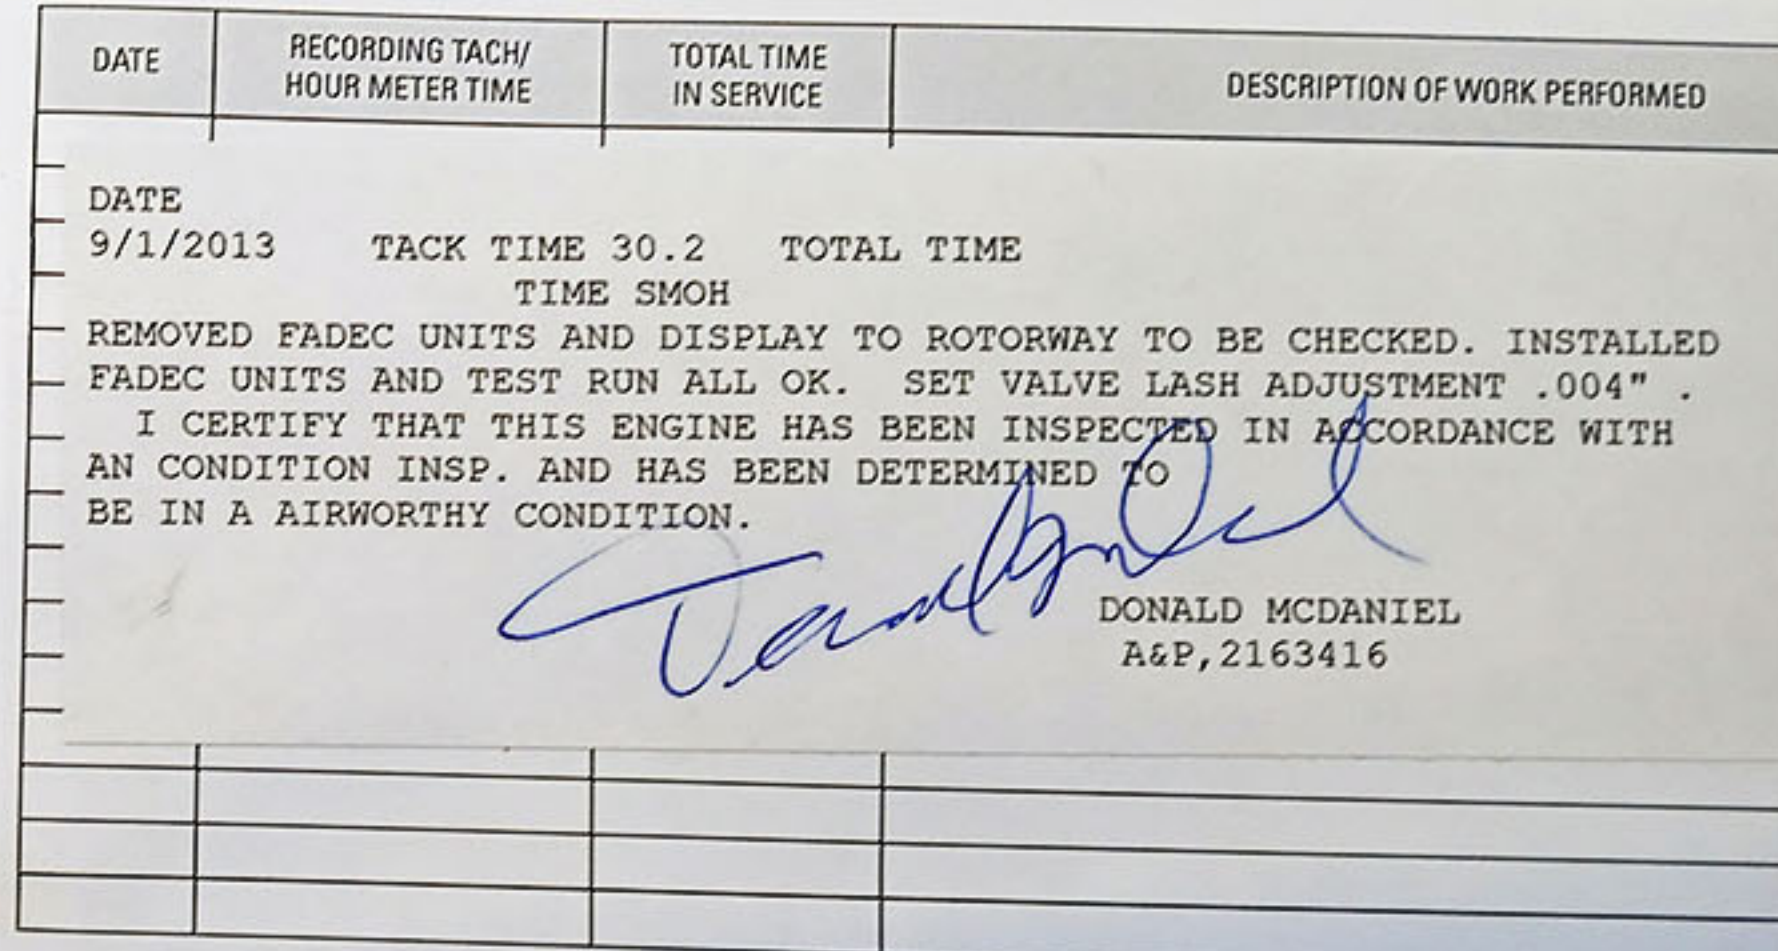 DATE
RECORDING TACH/
HOUR METER TIME
TOTAL TIME
IN SERVICE
DESCRIPTION OF WORK PERFORMED
DATE
9/1/2013 TACK TIME 30.2 TOTAL TIME
TIME SMOH
REMOVED FADEC UNITS AND DISPLAY TO ROTORWAY TO BE CHECKED. INSTALLED
FADEC UNITS AND TEST RUN ALL OK. SET VALVE LASH ADJUSTMENT .004" .
I CERTIFY THAT THIS ENGINE HAS BEEN INSPECTED IN ACCORDANCE WITH
AN CONDITION INSP. AND HAS BEEN DETERMINED TO
BE IN A AIRWORTHY CONDITION.
DONALD MCDANIEL
A&P,2163416